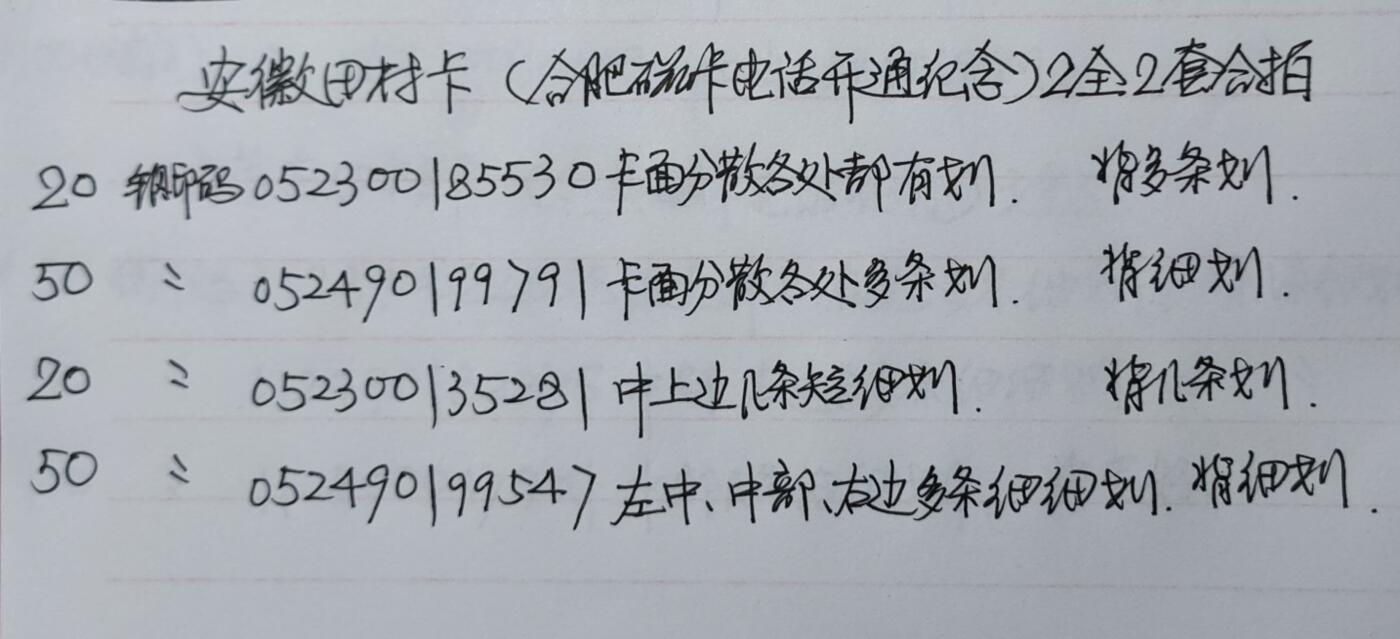 安徽田村卡（合肥磁卡电话开通纪念）2全2套合拍
20 钢印码 052300185530 卡面分散各处都有划. 背多条划.
50 〃 052490199791 卡面分散各处多条划. 背细划.
20 〃 052300135281 中上边几条短细划. 背几条划.
50 〃 052490199547 左中、中部、右边多条细细划. 背细划.